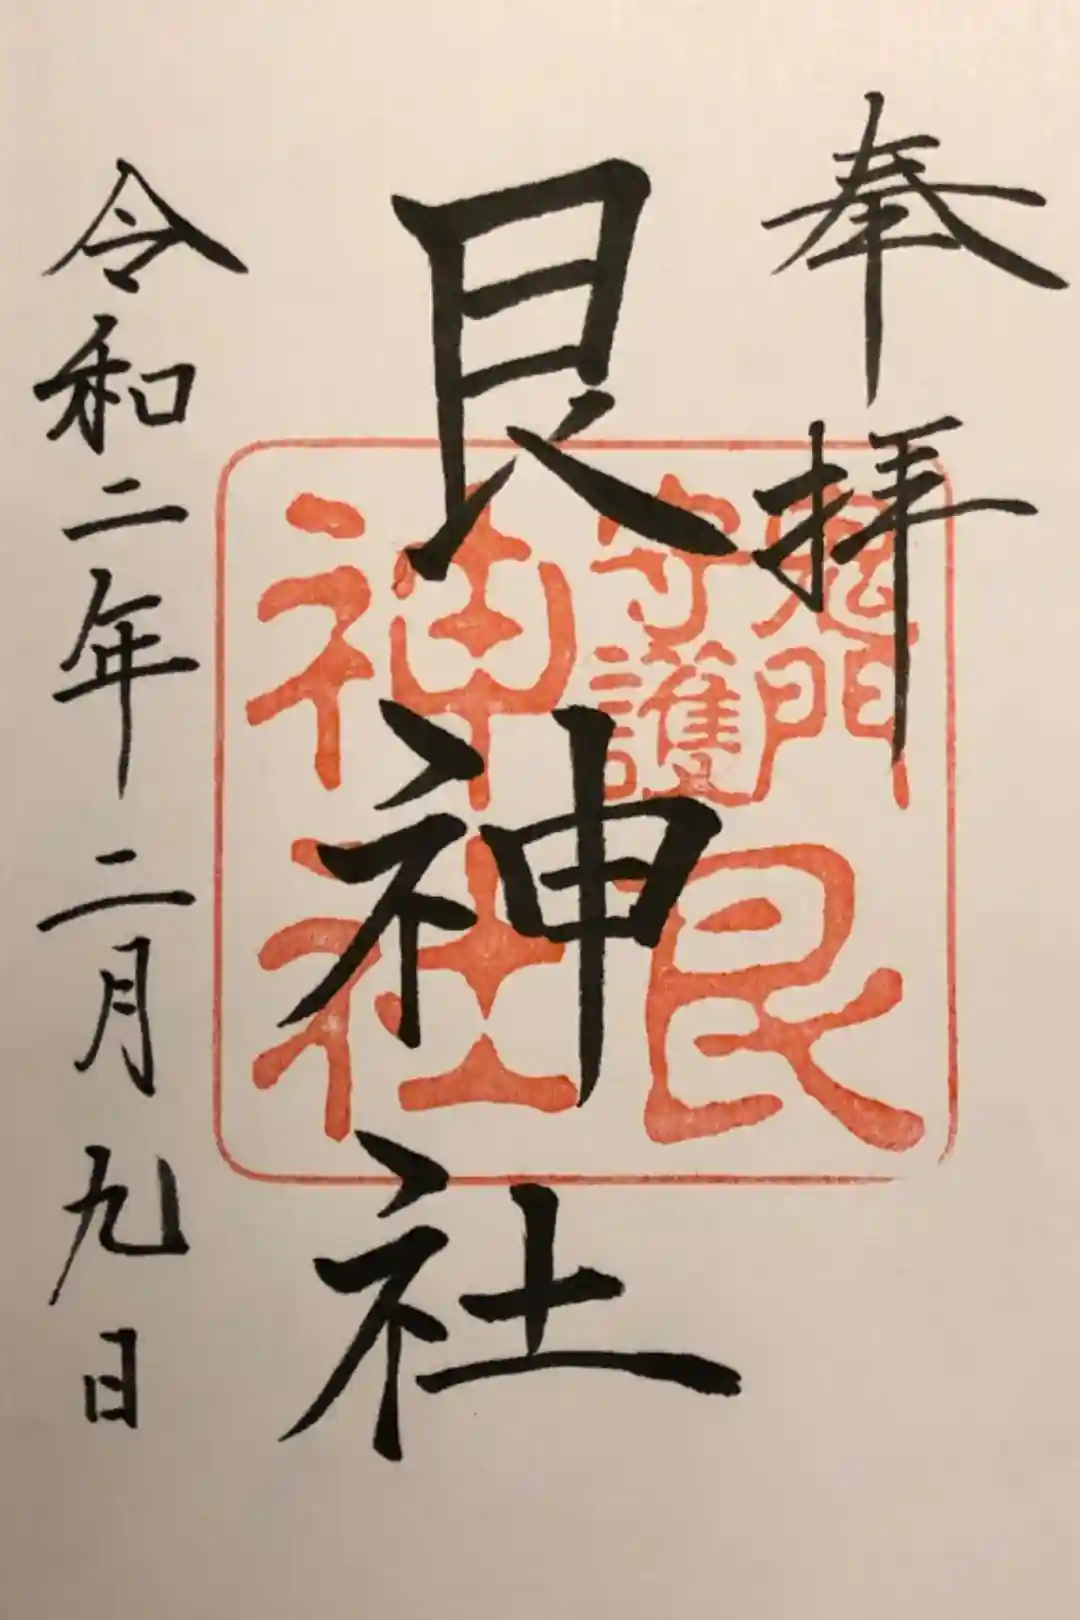 奉拝
艮神社
令和二年二月九日
鬼門
守護
艮
神社